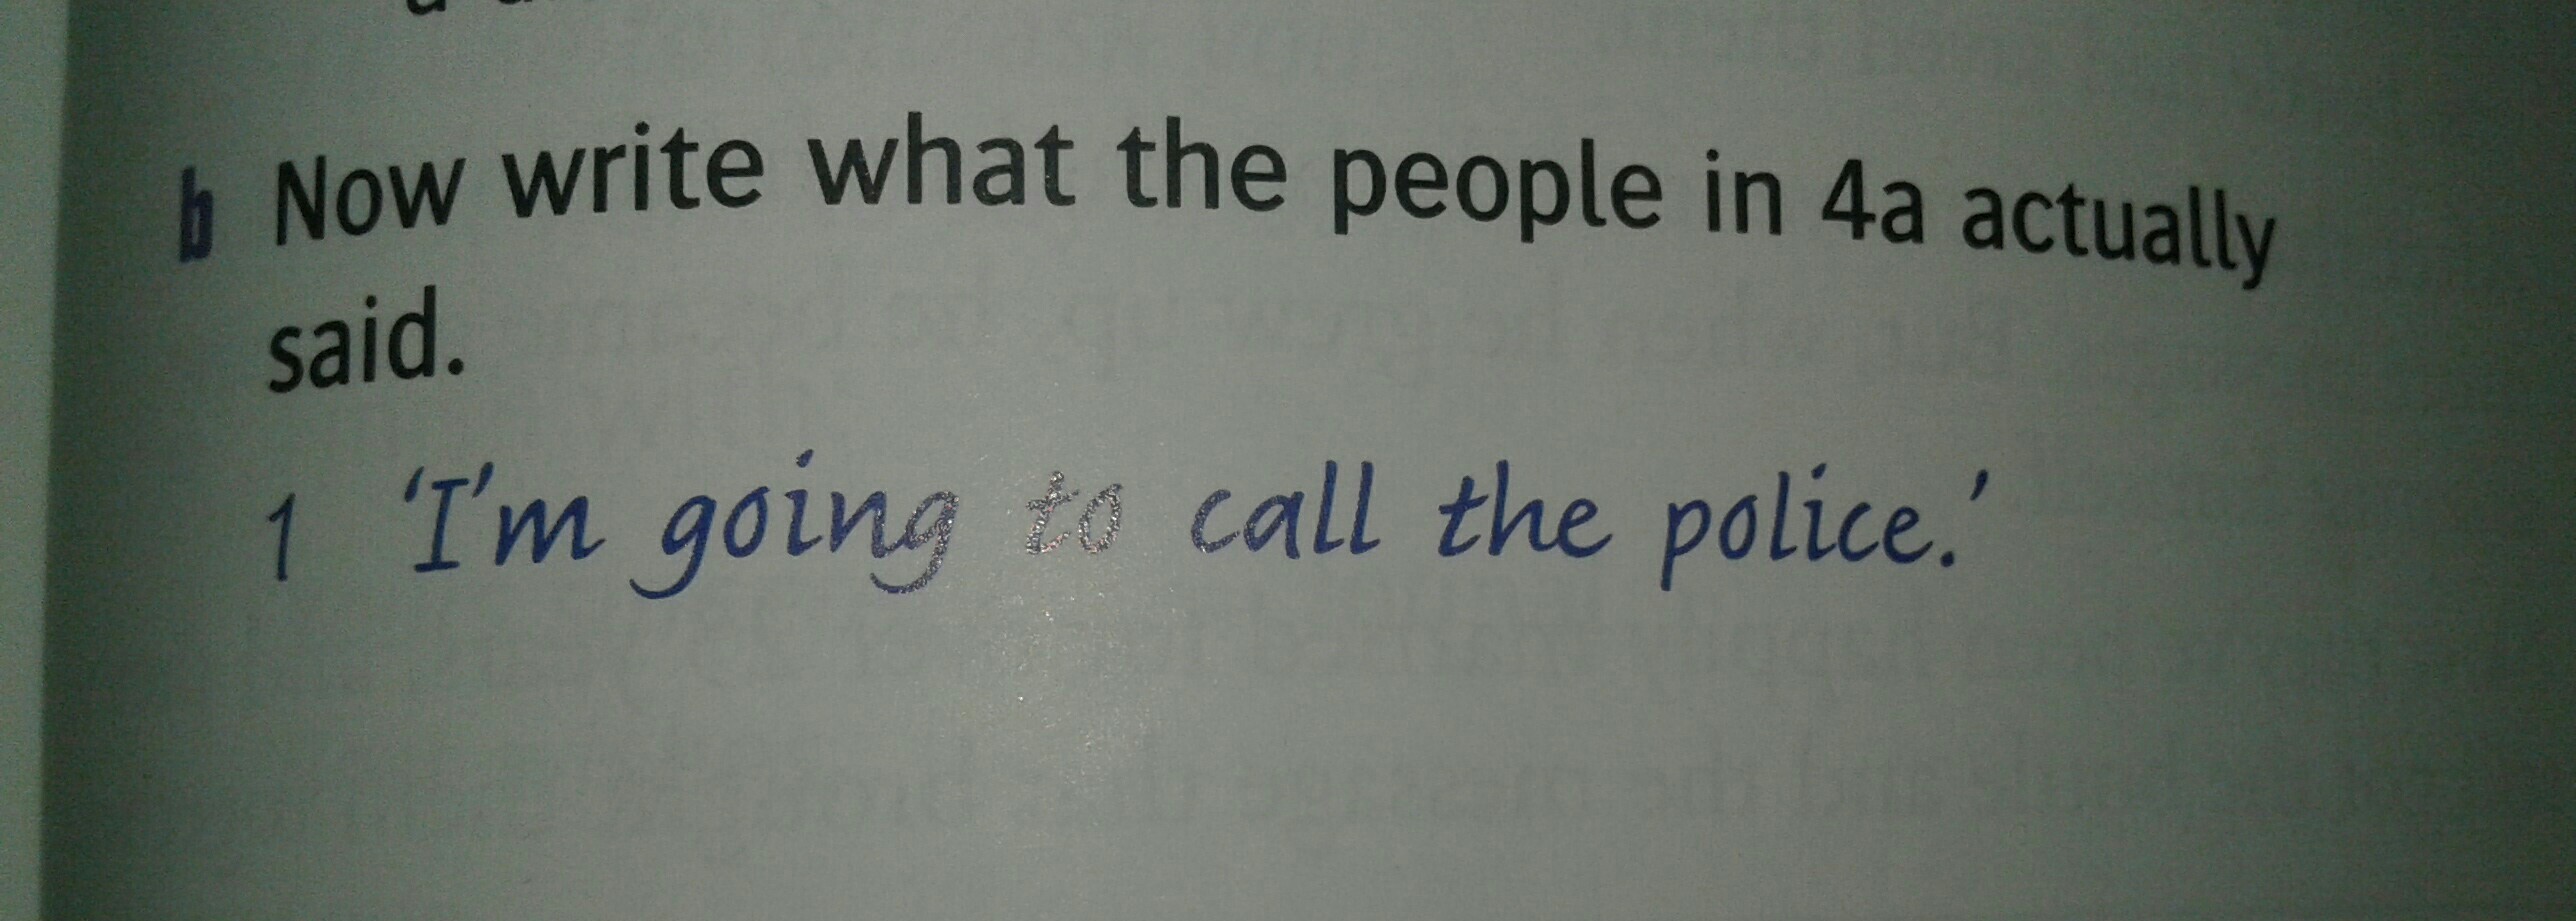 b Now write what the people in 4a actually
said.
1 ‘I’m going to call the police.’